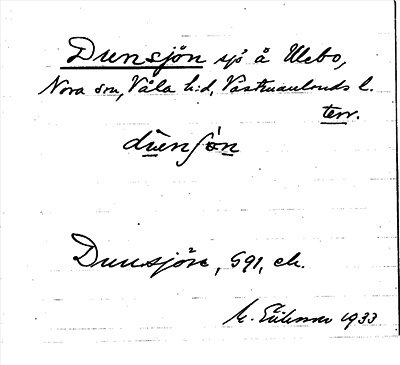 Dunsjön sjö å Ulebo,
Nora sn, Våla h:d, Västmanlands l.
terr.
du̇enʃön
Dunsjön, 591, ek.
M. Eriksson 1933